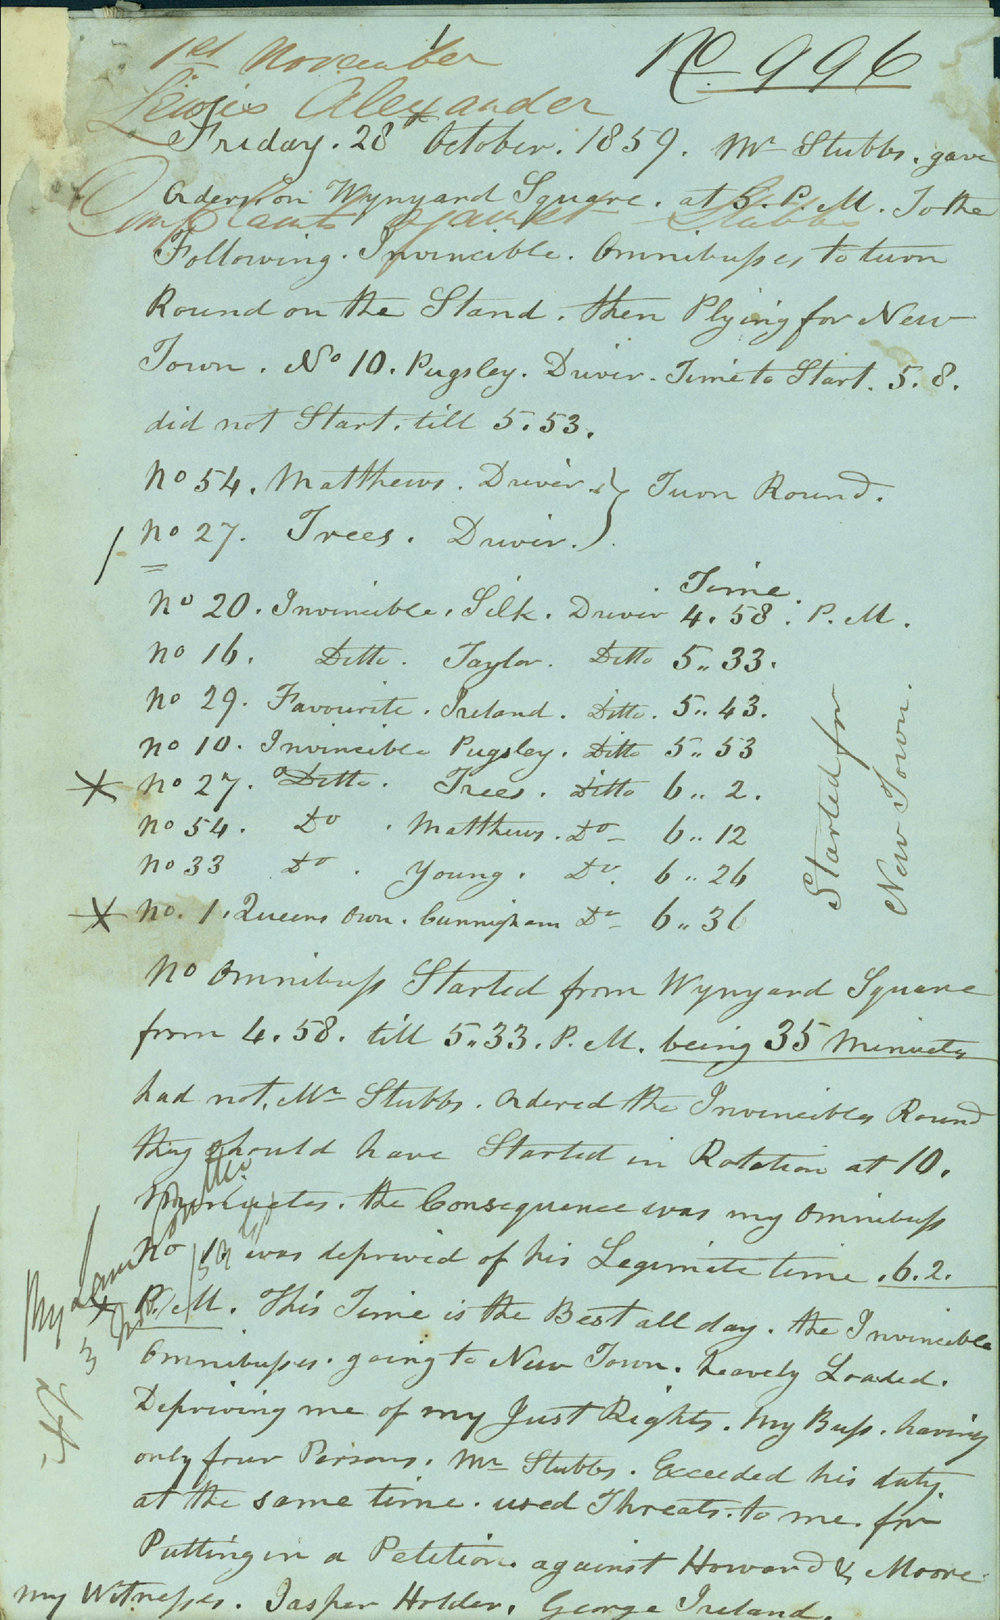 1st November
No. 996
Lewis Alexander
Friday. 28th October. 1859. Mr Stubbs. gave
Complaints against Stubbs
Orders on Wynyard Square. at 5. P. M. To the
Following. Invincible. Omnibusses to turn
Round on the Stand. then Plying for New
Town. No 10. Pugsley. Driver. Time to Start. 5. 8.
did not Start. till 5.53.
No 54. Matthews. Driver. } Turn Round.
/ No 27. Trees. Driver. }
Time.
No 20. Invincible. Silk. Driver 4. 58. P. M.
No 16. Ditto. Taylor. Ditto 5.. 33.
No 29. Favourite. Ireland. Ditto. 5.. 43.
No 10. Invincible Pugsley. Ditto 5.. 53
X No 27. Ditto. Trees. Ditto 6.. 2.
No 54. Do. Matthews. Do 6.. 12
No 33 Do. Young. Do. 6.. 26
X No. 1. Queens Own. Cunnigham Do 6.. 36
Started for
New Town.
No Omnibuss Started from Wynyard Square
from 4. 58. till 5..33. P. M. being 35 Minuets
had not, Mr Stubbs. Ordered the Invincibles Round
they should have Started in Rotation at 10.
Minuetes. the Consequence was my Omnibuss
No 1. was deprived of his Legimate time. 6. 2.
X P. M. This Time is the Best all day. the Invincible
Omnibusses. going to New Town. heavely Loaded.
Depriving me of my Just Rights. My Buss. having
only four Persons. Mr Stubbs. Exceeded his duty.
at the same time. used Threats. to me. for
Putting in a Petition. against Howard & Moore.
my Witnesses. Jasper Holder. George Ireland.